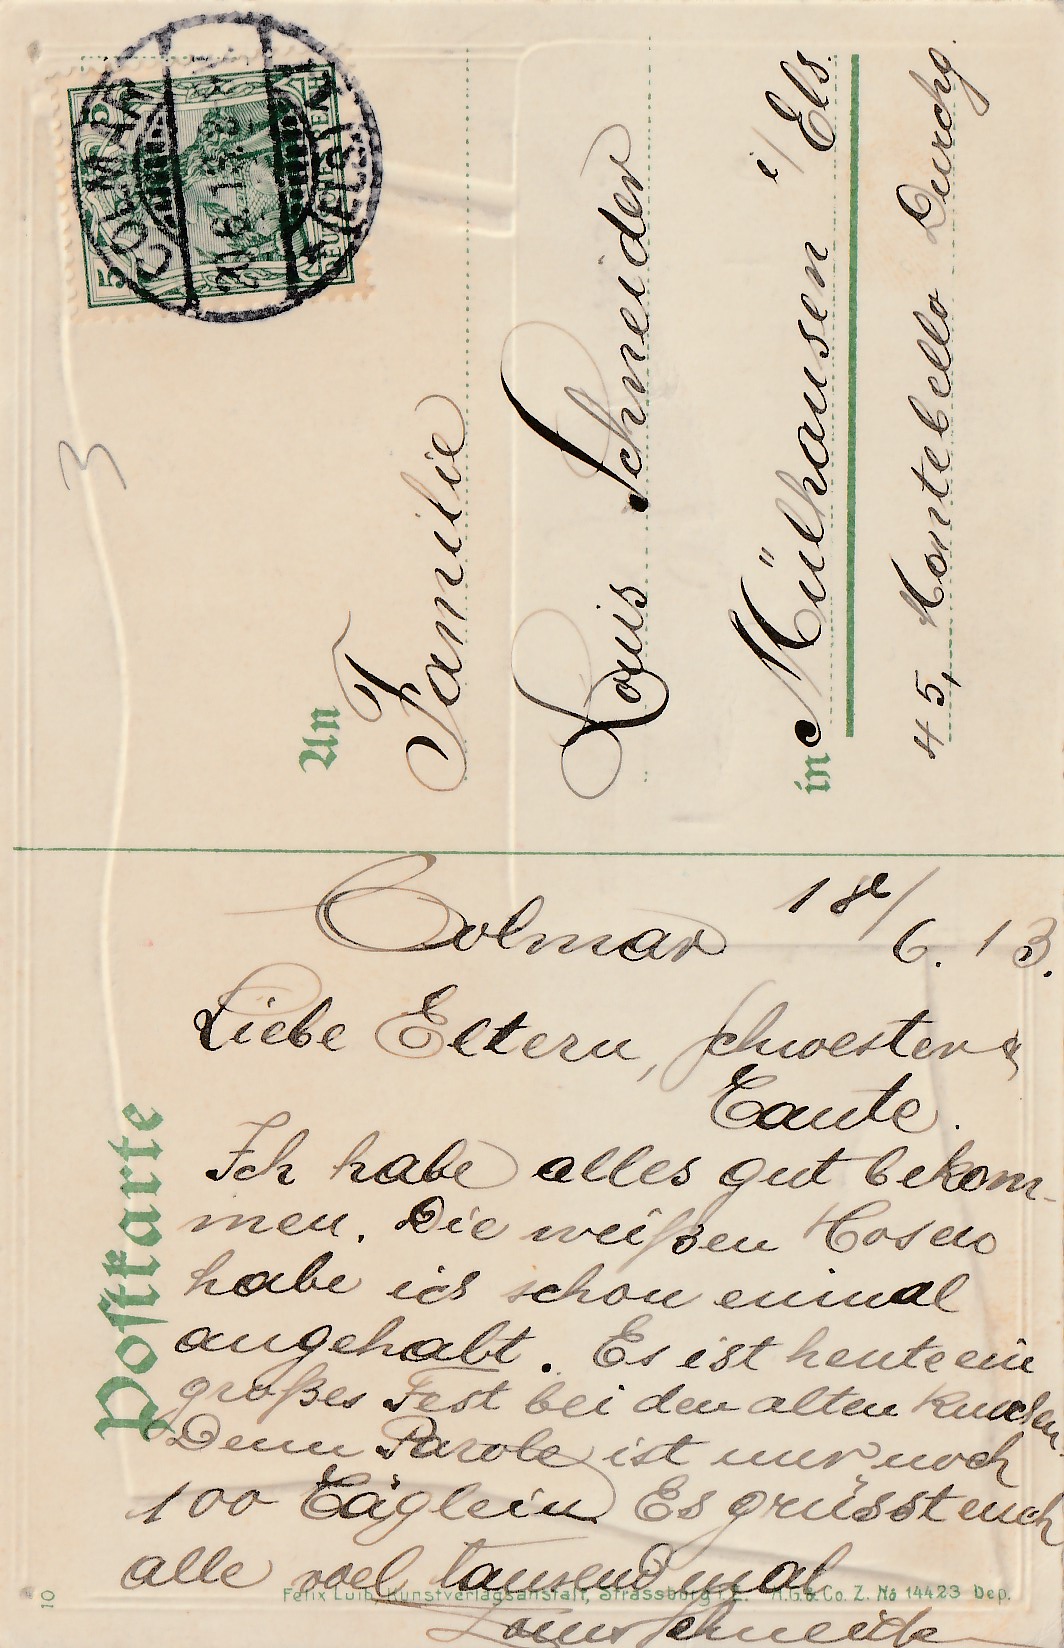 COLMAR
20.6.13.8
(ELS.)
5
5
DEUTSCHES REICH
3
An
Familie
Louis Schneider
in Mülhausen i/ Els.
45, Montebello Durchg.
Postkarte
Colmar 18/6.13.
Liebe Eltern, Schwester &
Tante.
Ich habe alles gut bekom-
men. Die weißen Hosen
habe ich schon einmal
angehabt. Es ist heute ein
großes Fest bei den alten Knochen.
Denn Parole ist nur noch
100 Täglein Es grüsst euch
alle viel tausend mal
Louis Schneider
10
Felix Luib, Kunstverlagsanstalt, Strassburg i. E. A.G.& Co. Z. No 14423 Dep.